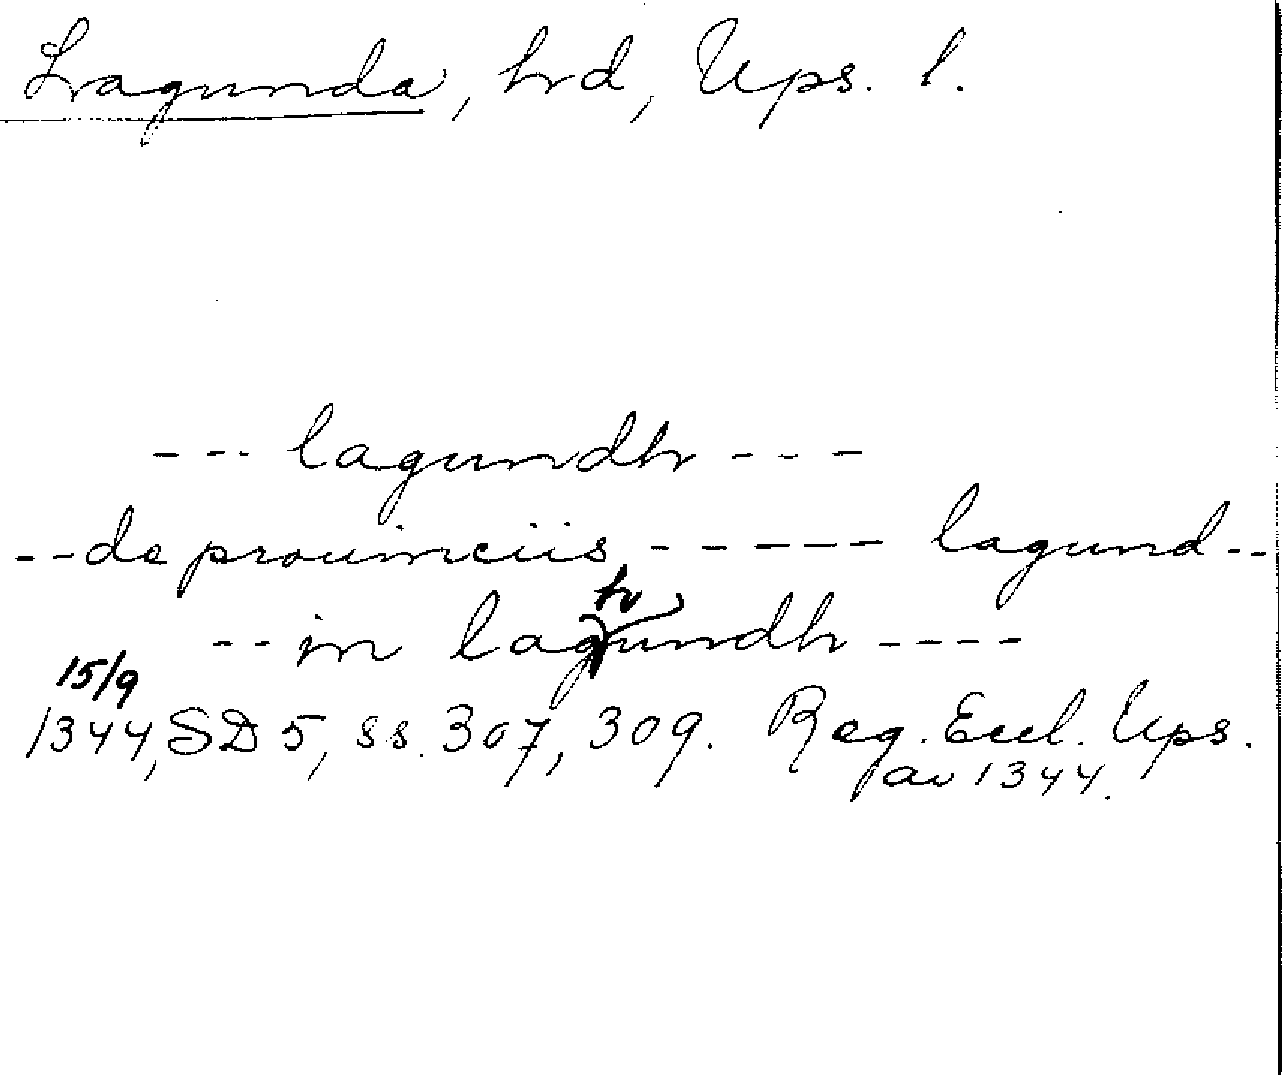 Lagunda, hd, Ups. l.
--- lagundh ---
--de prouinciis ------ lagund--
--in laghundh ----
15/9
1344, SD 5, ss. 307, 309. Reg. Eccl. Ups.
av 1344.